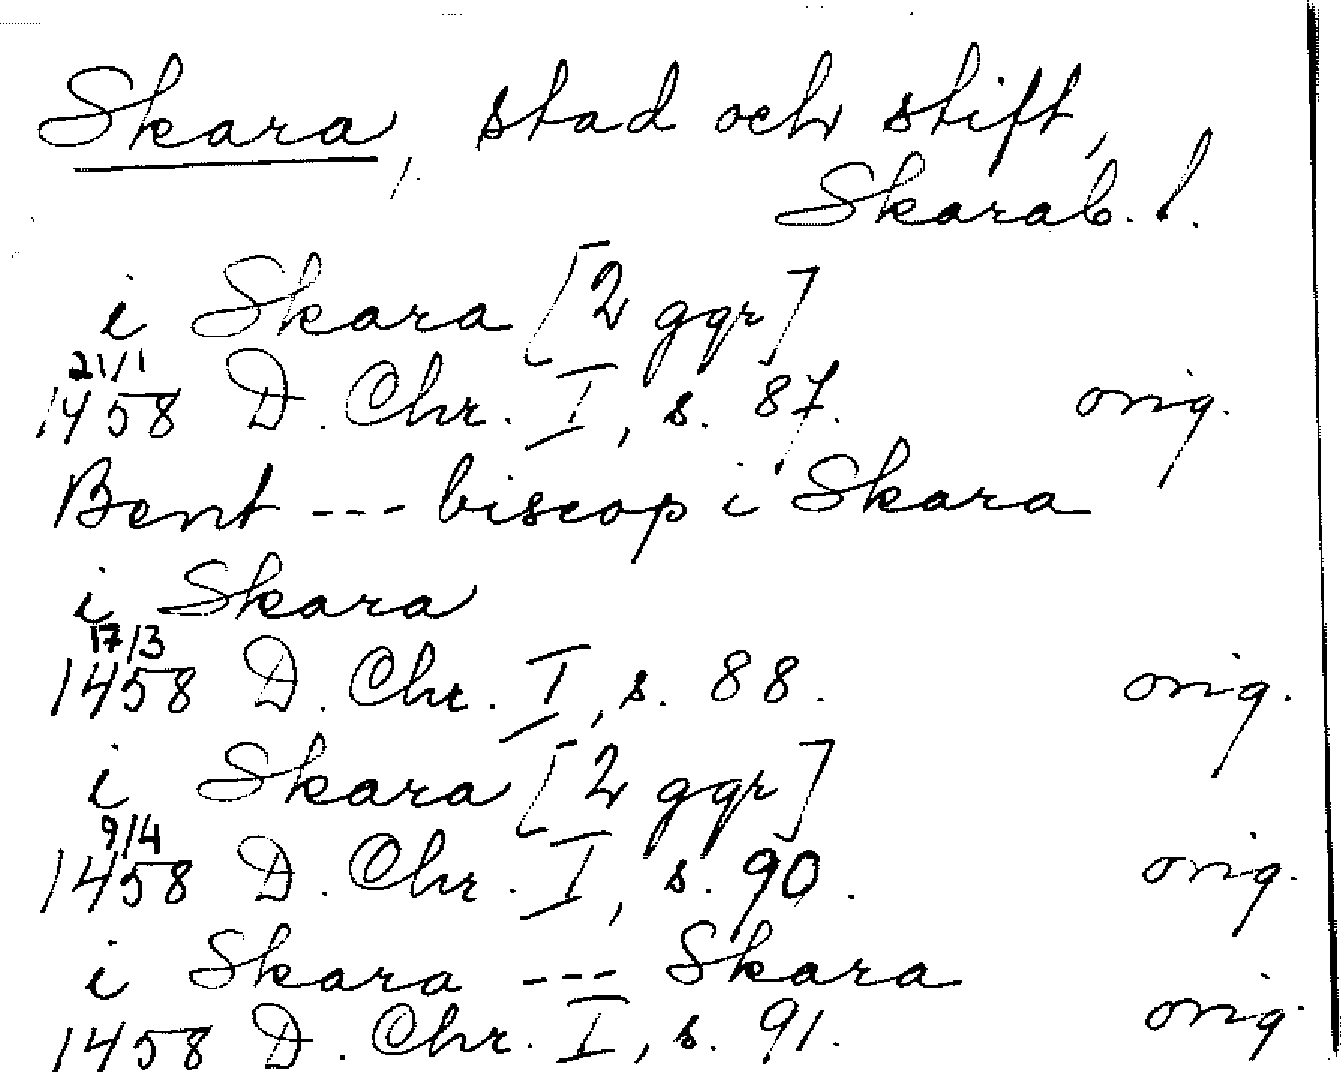 Skara, stad och stift,
Skarab. l.
i Skara [2 ggr]
21/1
1458 D. Chr. I, s. 87. orig.
Bent --- biscop i Skara
i Skara
17/3
1458 D. Chr. I, s. 88. orig.
i Skara [2 ggr]
9/4
1458 D. Chr. I, s. 90. orig.
i Skara --- Skara
1458 D. Chr. I, s. 91. orig.